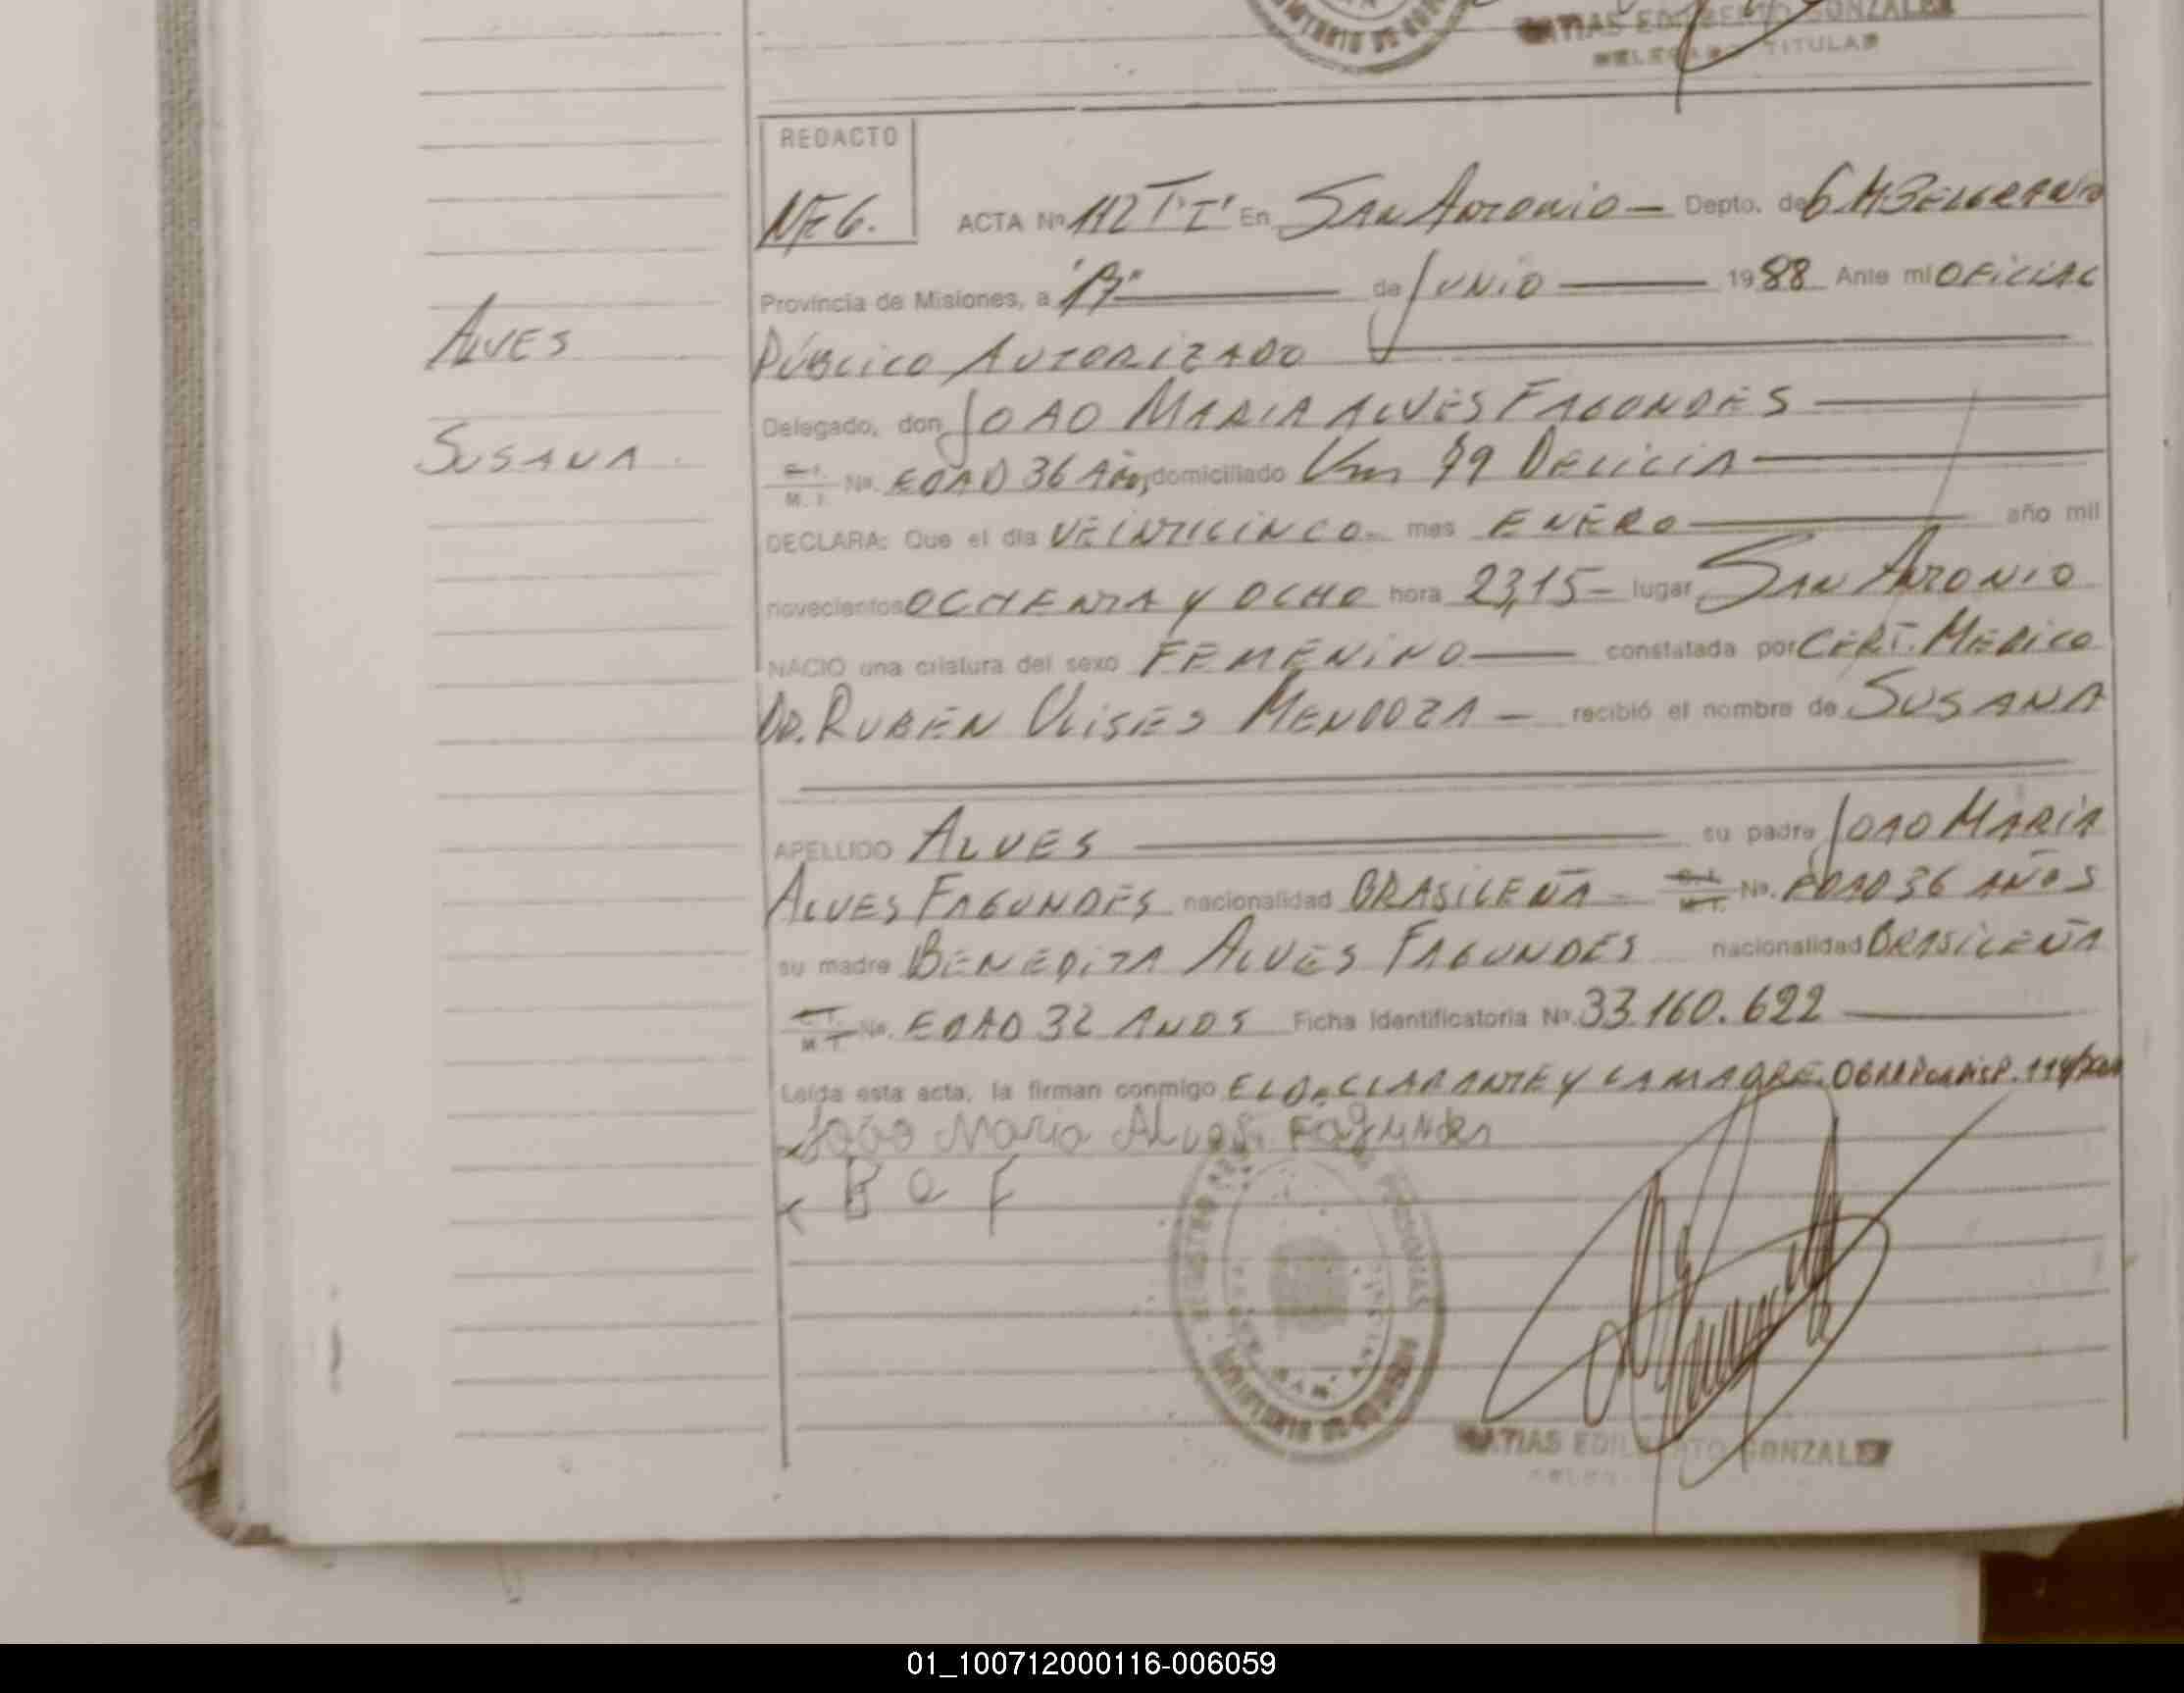 MATIAS EDILBERTO GONZALEZ
DELEGADO TITULAR
REDACTO
ACTA Nº 112 Tº I En SAN ANTONIO — Depto. de G. M. BELGRANO
Provincia de Misiones, a "17" de JUNIO 1988 Ante mi OFICIAL
PÚBLICO AUTORIZADO
ALVES
Delegado, don JOAO MARIA ALVES FAGUNDES
SUSANA
C. I.
M. I. No. EDAD 36 Años, domiciliado Km 79 DELICIA
DECLARA: Que el día VEINTICINCO mes ENERO año mil
novecientos OCHENTA Y OCHO hora 23,15 — lugar SAN ANTONIO
NACIO una criatura del sexo FEMENINO constatada por CERT. MEDICO
DR. RUBEN ULISES MENDOZA — recibió el nombre de SUSANA
APELLIDO ALVES su padre JOAO MARIA
ALVES FAGUNDES nacionalidad BRASILEÑA — C. I. M. I. No. EDAD 36 AÑOS
su madre BENEDITA ALVES FAGUNDES nacionalidad BRASILEÑA
C. I. M. I. No. EDAD 32 AÑOS Ficha Identificatoria Nº 33.160.622
Leída esta acta, la firman conmigo EL DECLARANTE Y LA MADRE.
x João Maria Alves Fagundes
x B a f
MATIAS EDILBERTO GONZALEZ
01_100712000116-006059